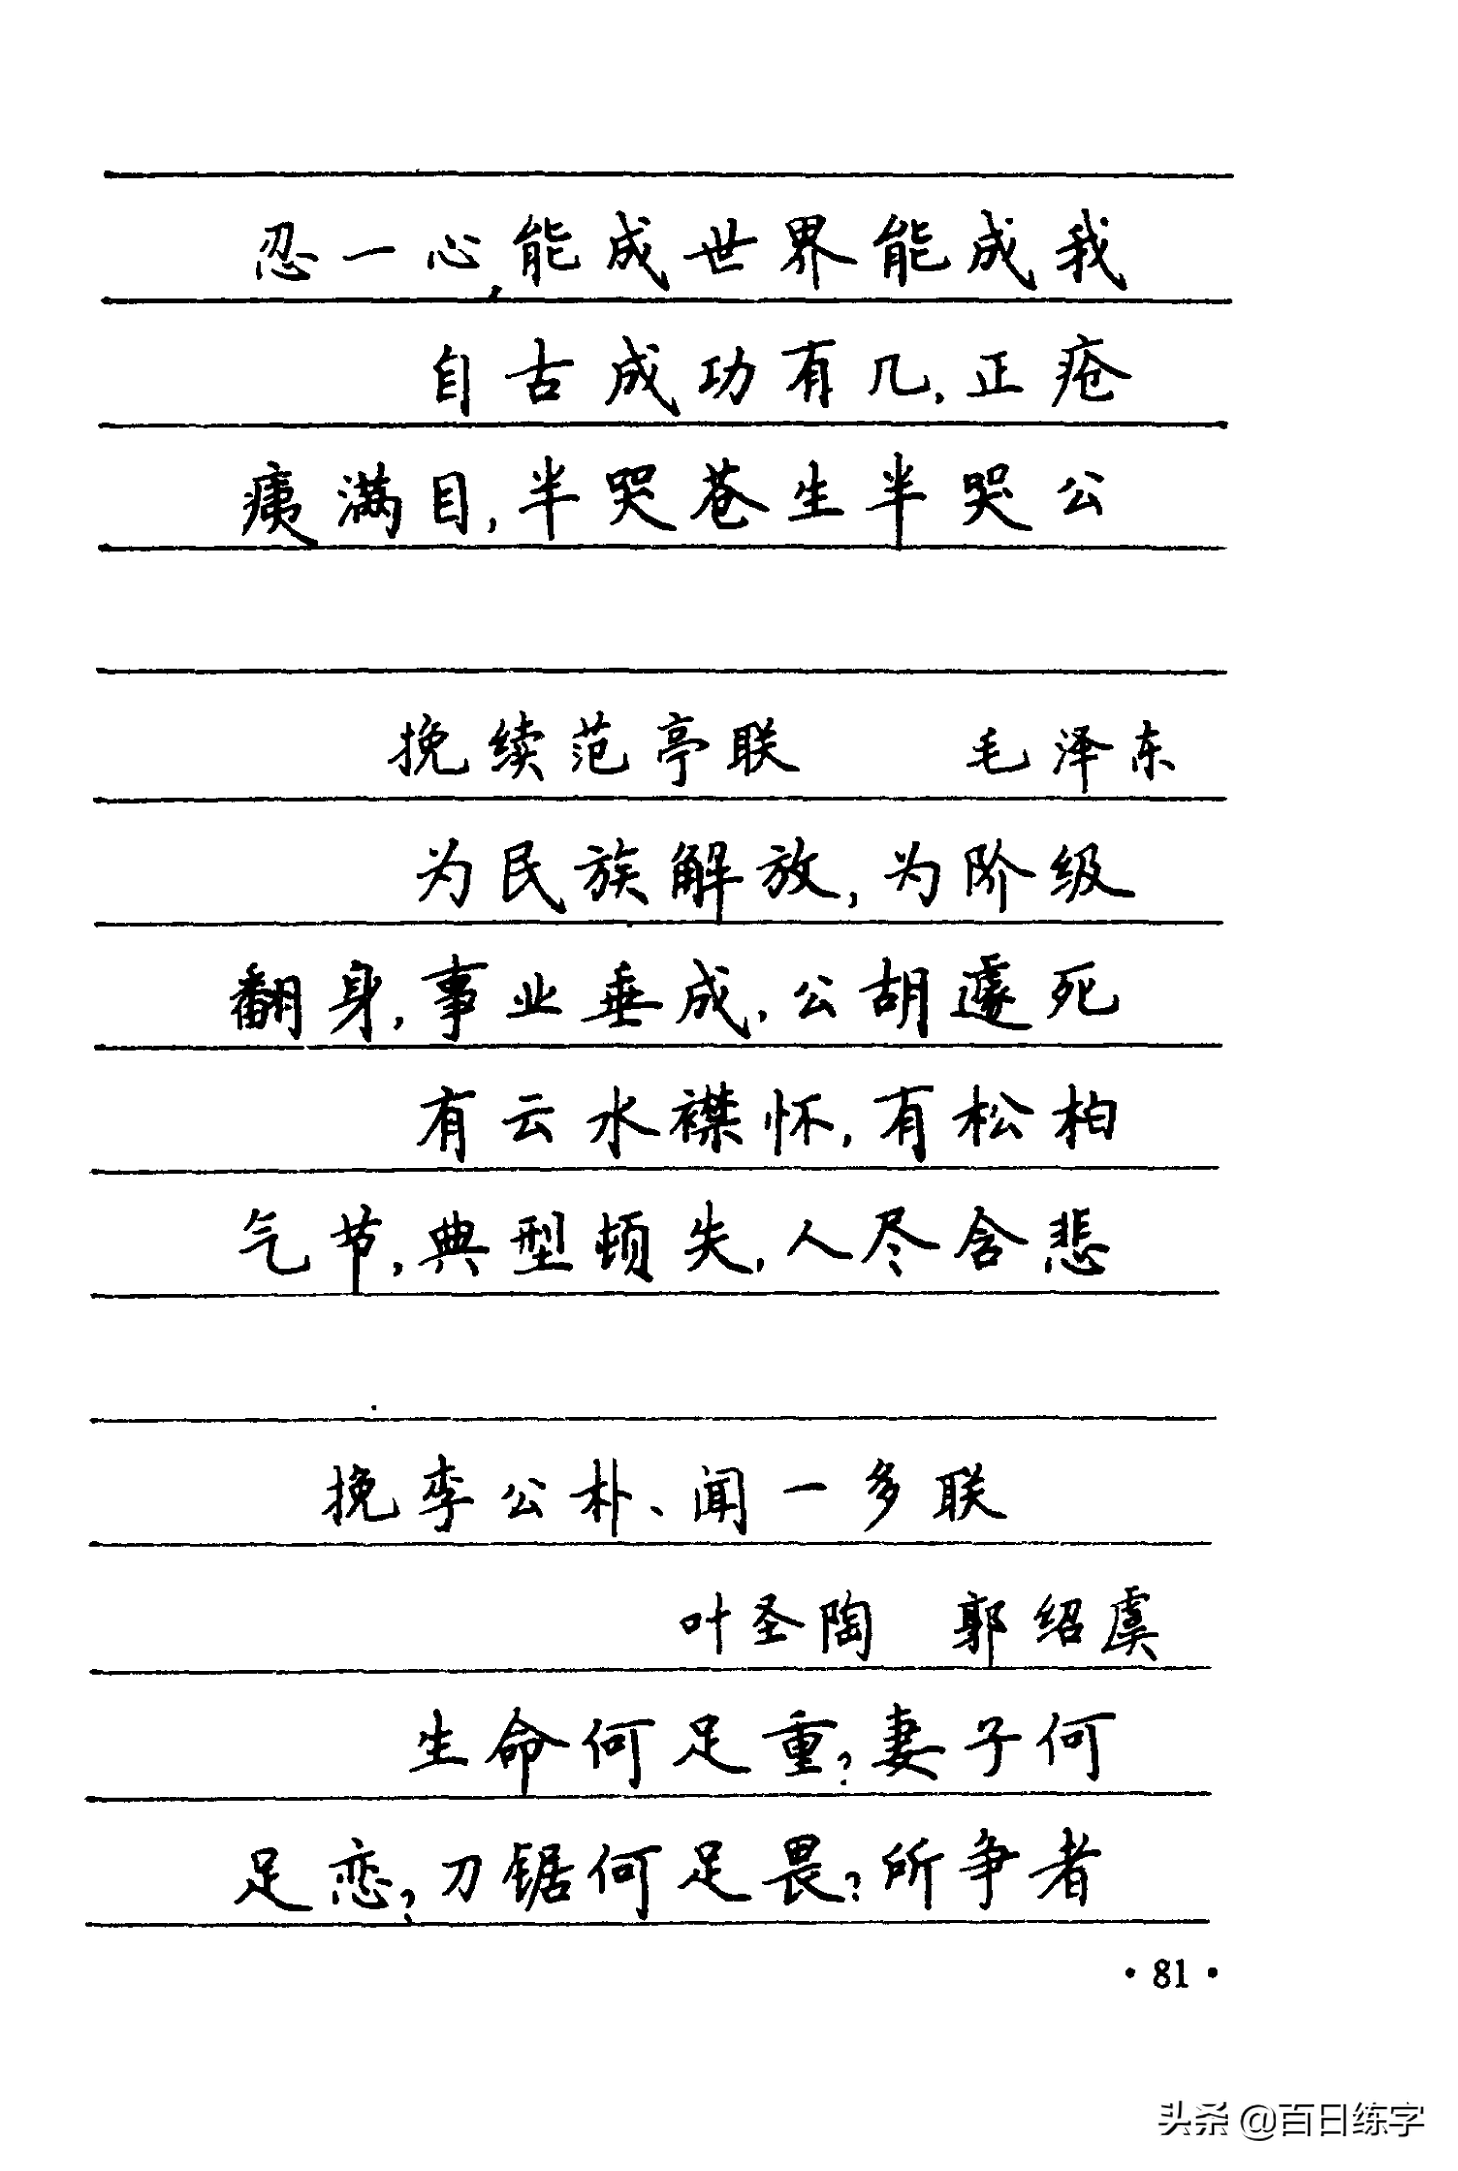 忍一心,能成世界能成我
自古成功有几,正疮
痍满目,半哭苍生半哭公
挽续范亭联 毛泽东
为民族解放,为阶级
翻身,事业垂成,公胡遽死
有云水襟怀,有松柏
气节,典型顿失,人尽含悲
挽李公朴、闻一多联
叶圣陶 郭绍虞
生命何足重?妻子何
足恋?刀锯何足畏?所争者
·81·
头条 @百日练字